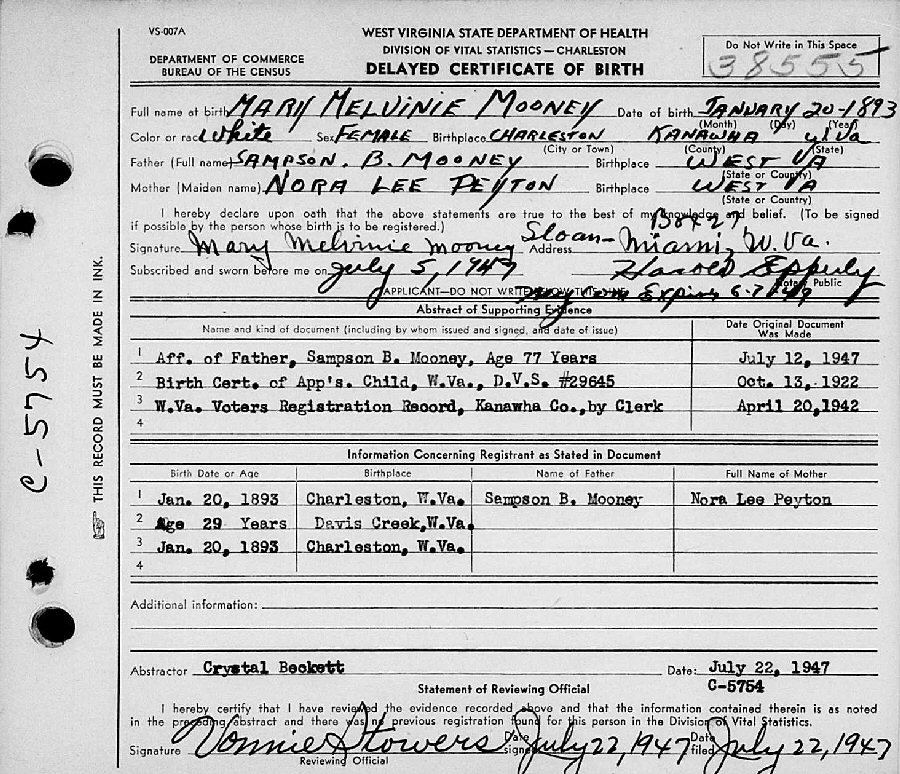 VS-007A
WEST VIRGINIA STATE DEPARTMENT OF HEALTH
DIVISION OF VITAL STATISTICS — CHARLESTON
DEPARTMENT OF COMMERCE
BUREAU OF THE CENSUS
DELAYED CERTIFICATE OF BIRTH
Do Not Write in This Space
38555
Full name at birth MARY MELVINIE MOONEY Date of birth JANUARY 20-1893
(Month) (Day) (Year)
Color or race White Sex FEMALE Birthplace CHARLESTON KANAWHA W Va
(City or Town) (County) (State)
Father (Full name) SAMPSON. B. MOONEY Birthplace WEST VA
(State or Country)
Mother (Maiden name) NORA LEE PEYTON Birthplace WEST VA
(State or Country)
I hereby declare upon oath that the above statements are true to the best of my knowledge and belief. (To be signed
if possible by the person whose birth is to be registered.) Box 27,
Signature Mary Melvinie Mooney Address Sloan- Miami, W.Va.
Subscribed and sworn before me on July 5, 1947 Harold Epperly
Notary Public
APPLICANT—DO NOT WRITE BELOW THIS LINE
My com Expires 6-7-49
Abstract of Supporting Evidence
Name and kind of document (including by whom issued and signed, and date of issue) Date Original Document
Was Made
1 Aff. of Father, Sampson B. Mooney, Age 77 Years July 12, 1947
2 Birth Cert. of App's. Child, W.Va., D.V.S. #29645 Oct. 13, 1922
3 W.Va. Voters Registration Record, Kanawha Co., by Clerk April 20, 1942
4
Information Concerning Registrant as Stated in Document
Birth Date or Age Birthplace Name of Father Full Name of Mother
1 Jan. 20, 1893 Charleston, W.Va. Sampson B. Mooney Nora Lee Peyton
2 Age 29 Years Davis Creek, W.Va.
3 Jan. 20, 1893 Charleston, W.Va.
4
Additional information:
Abstractor Crystal Beckett Date: July 22, 1947
C-5754
Statement of Reviewing Official
I hereby certify that I have reviewed the evidence recorded above and that the information contained therein is as noted
in the preceding abstract and there was no previous registration found for this person in the Division of Vital Statistics.
Signature Vonnie Stowers Date signed July 22, 1947 Date filed July 22, 1947
Reviewing Official
☞ THIS RECORD MUST BE MADE IN INK.
C-5754